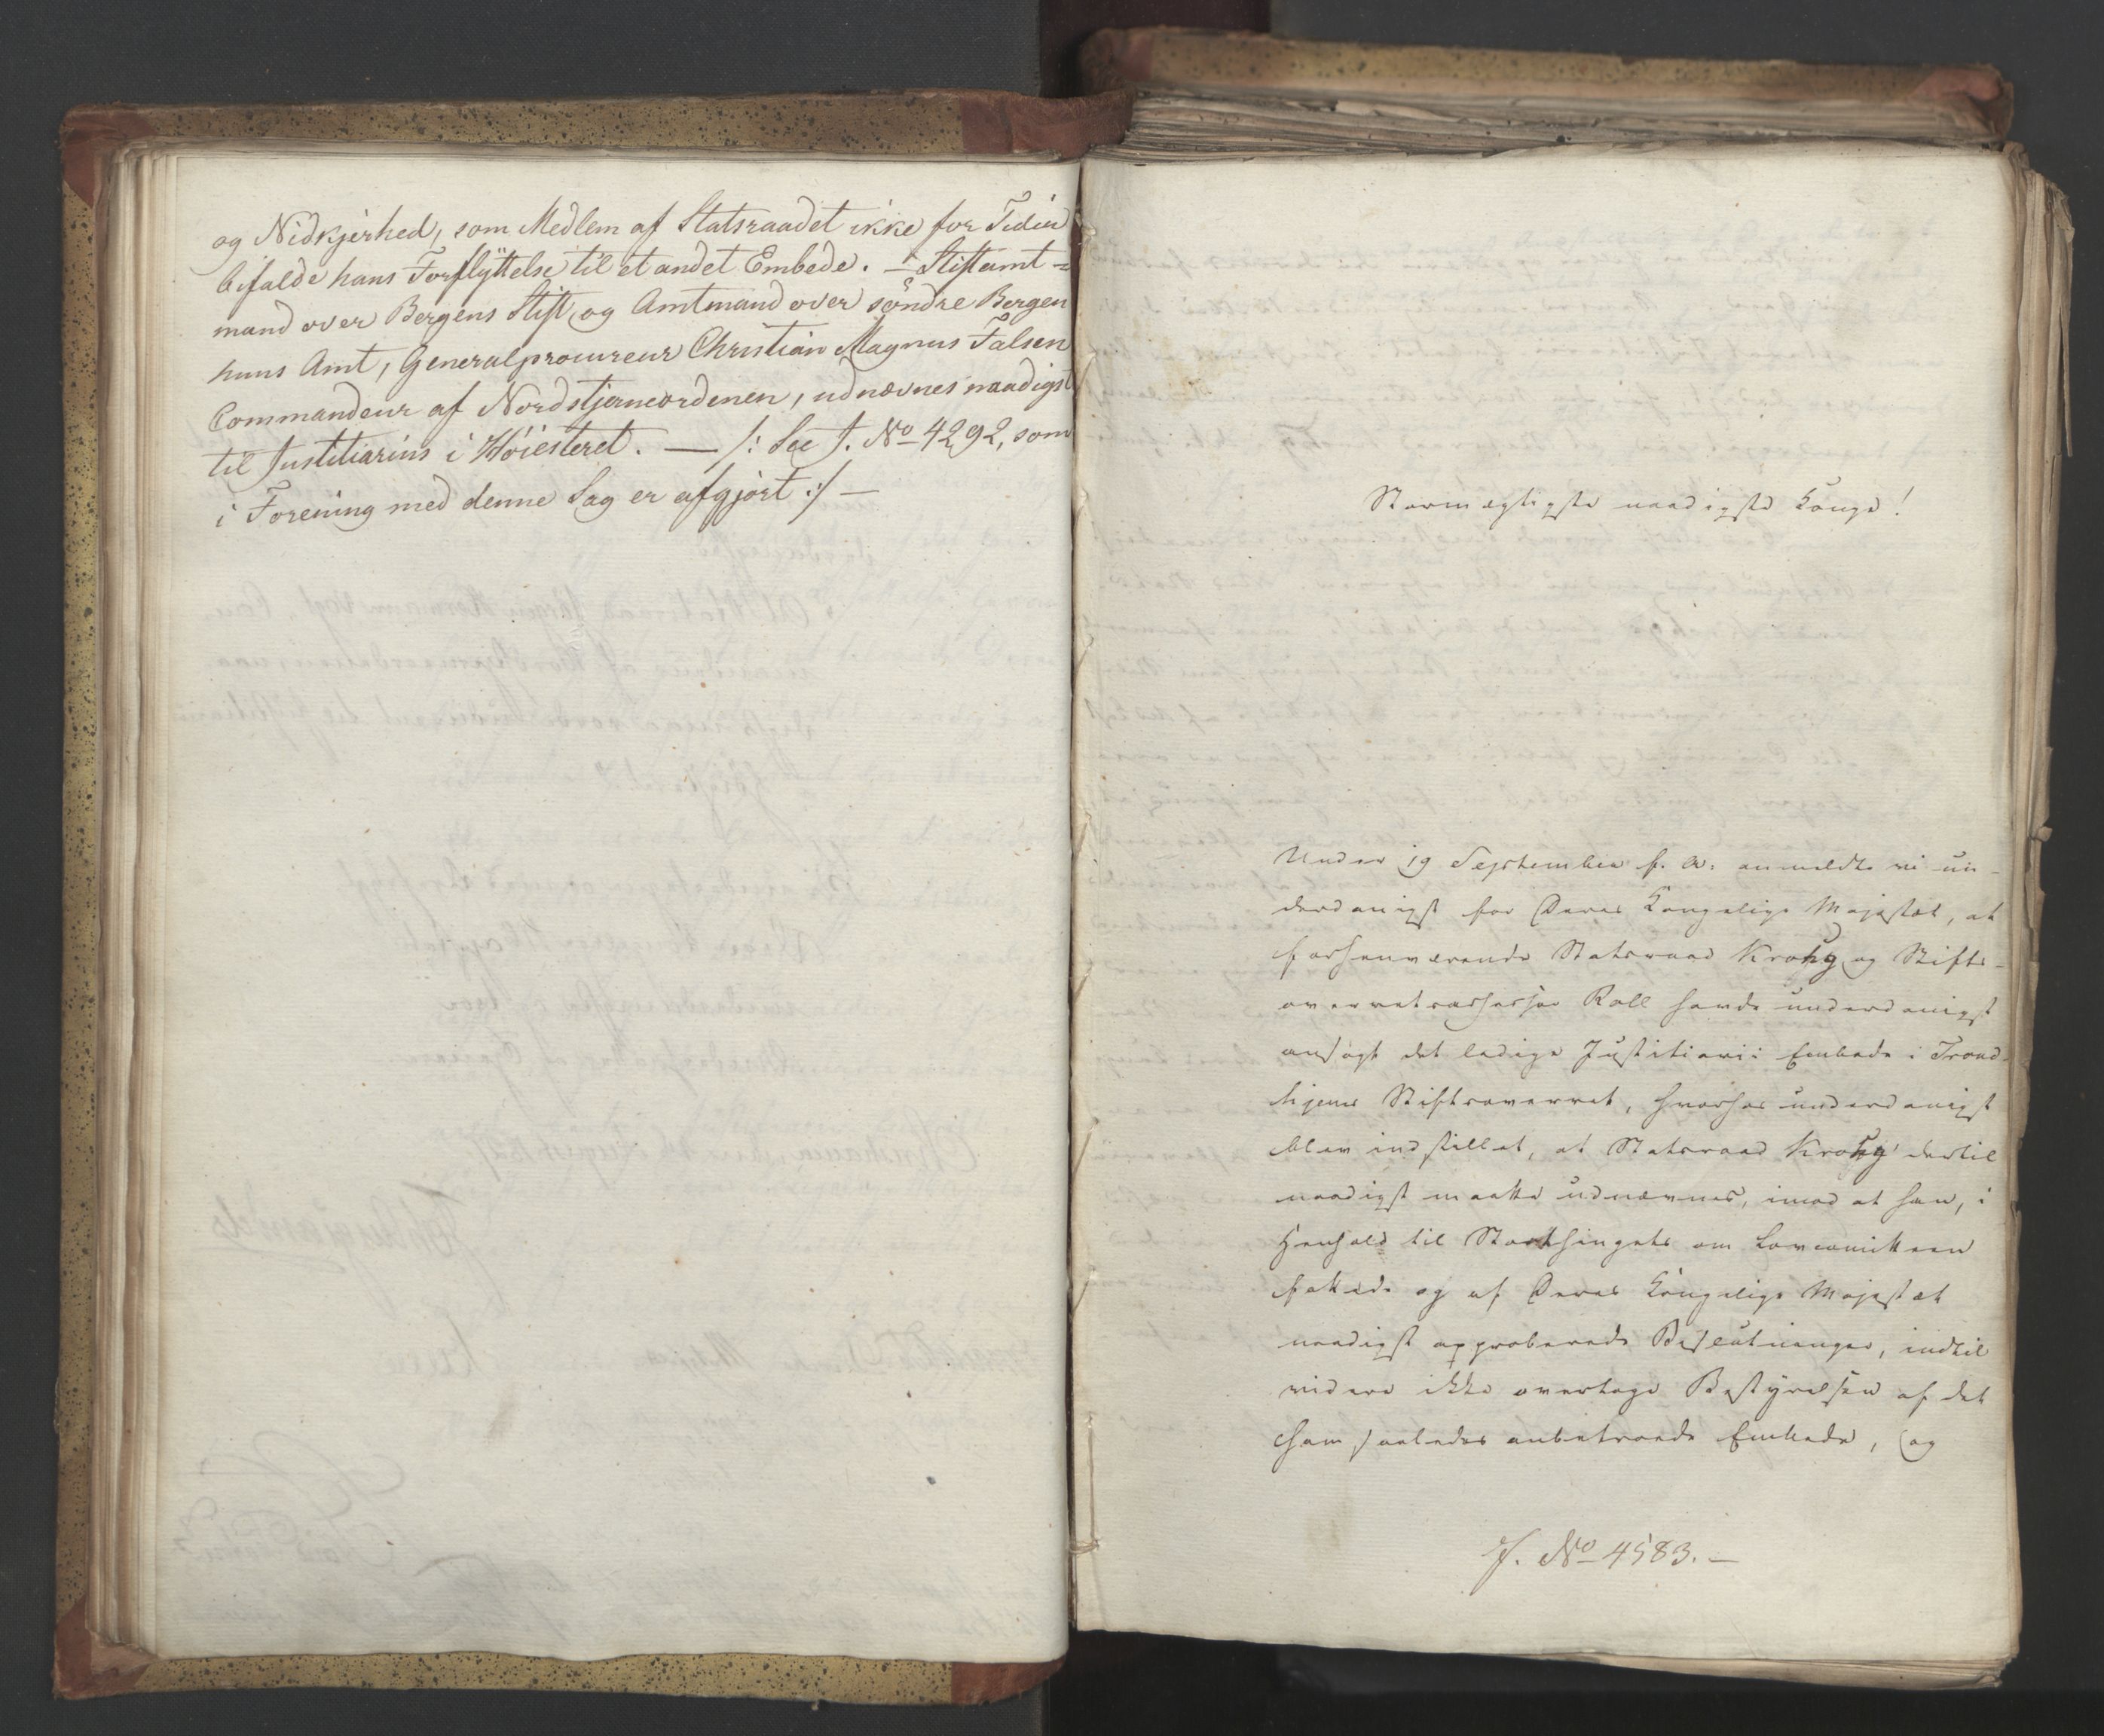 og Nidkjerhed, som Medlem af Statsraadet ikke for Tiden
bifalde hans Forflyttelse til et andet Embede. — Stiftamt=
mand over Bergens Stift og Amtmand over söndre Bergen
huus Amt, Generalprocureur Christian Magnus Falsen
Commandeur af Nordstjerneordenen, udnævnes naadigst
til Justitiarius i Höiesteret. — /: See J. No 4292, som
i Forening med denne Sag er afgjört :/ —
Stormægtigste naadigste Konge!
Under 19 September f. A. anmeldte vi un-
derdanigst for Deres Kongelige Majestæt, at
forhenværende Statsraad Krohg og Stifts-
overretsassessor Roll havde underdanigst
ansøgt det ledige Justitiarii Embede i Trond-
hjems Stiftsoverret, hvorhos underdanigst
blev indstillet, at Statsraad Krohg dertil
naadigst maatte udnævnes, imod at han, i
Henhold til Storthingets om Lovcomitteen
fattede og af Deres Kongelige Majestæt
naadigst approberede Beslutninger, indtil
videre ikke overtage Bestyrelsen af det
ham saaledes anbetroede Embede, og
J. No 4583. —